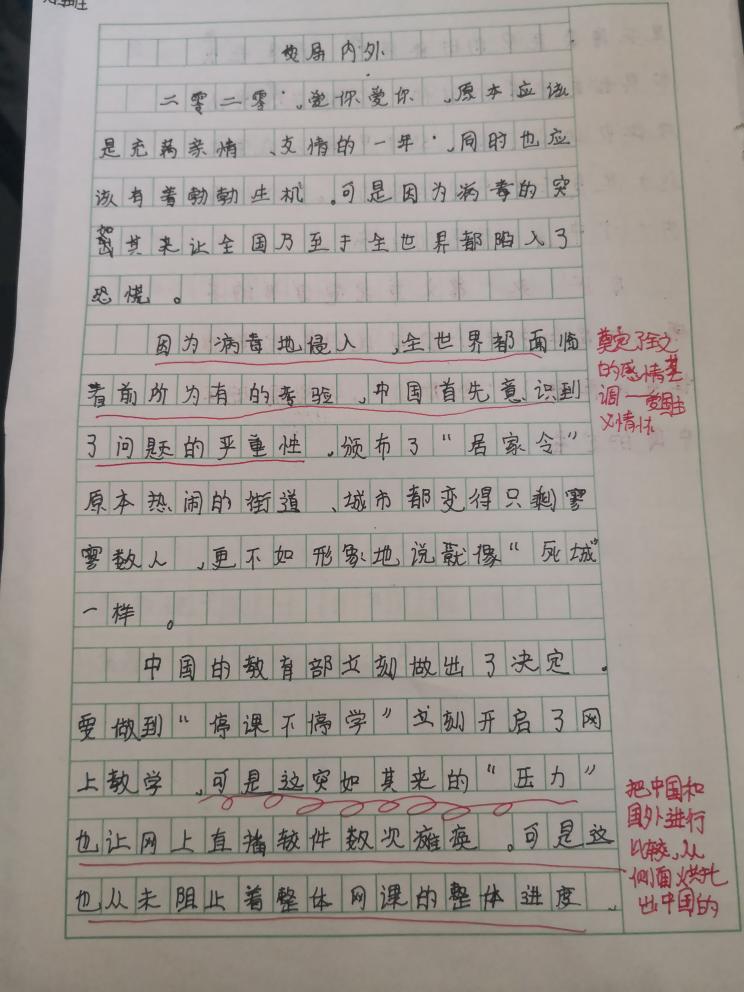 局内外
二零二零，爱你爱你，原本应该
是充满亲情、友情的一年，同时也应
该有着勃勃生机。可是因为病毒的突
如其来让全国乃至于全世界都陷入了
恐慌。
因为病毒地侵入，全世界都面临
着前所为有的考验，中国首先意识到
了问题的严重性，颁布了“居家令”
原本热闹的街道、城市都变得只剩寥
寥数人，更不如形象地说就像“死城”
一样。
中国的教育部立刻做出了决定。
要做到“停课不停学”立刻开启了网
上教学，可是这突如其来的“压力”
也让网上直播软件数次瘫痪。可是这
也从未阻止着整体网课的整体进度，
奠定了全文
的感情基
调——爱国主
义情怀
把中国和
国外进行
比较，从
侧面烘托
出中国的